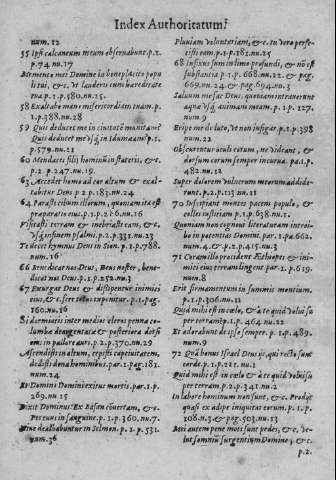 Index Authoritatum
num. 12
55 Ipsi calcaneum meum observabunt. p. 1.
p. 74. nu. 17
Memento mei Domine in beneplacito popu
li tui, &c. ut lauderis cum hæreditate
tua p. 1. p. 580. nu. 25.
58 Exaltabo mane misericordiam tuam. p.
1. p. 388. nu. 28
59 Quis deducet me in civitatem munitam?
Quis deducet me usq; in Idumæam? p. 1.
p. 579. nu. 21
60 Mendaces filij hominum in stateris, &c.
p. 2 p 247. nu. 19.
63 Accedet homo ad cor altum & exal-
tabitur Deus p 2 p. 183. nu. 24
64 Parasti cibum illorum, quoniam ita est
præparatio eius. p. 1. p. 216. nu. 16
Visitasti terram & inebriasti eam, &c.
usq; ad finem psalmi. p. 2. p. 333. nu. 23
Te decet hymnus Deus in Sion. p. 1. p. 788.
num. 16
66 Benedicat nos Deus, Deus noster, bene-
dicat nos p. 1. p. 252. nu. 3
67 Exurgat Deus & dissipentur inimici
eius, & c. fere totus expenditur. p. 1. pag.
160. nu. 16
Si dormiatis inter medios cleros pennæ co-
lumbæ deargentatæ & posteriora dorsi
eius in pallore auri. p. 2. p. 370. nu. 29
Ascendisti in altum, cepisti captivitatem,
dedisti dona hominibus. par. 1. pag. 181.
num. 24
Et Domini Domini exitus mortis. par. 1. p.
269. nu. 15
Dixit Dominus: Ex Basan convertam, &c.
Percussi in sanguine. p. 1. p. 360. nu. 7.
Nive dealbabuntur in Selmon. p. 1. p. 531.
num. 36
Pluviam voluntariam, &c. Tu vero perfe-
cisti eam. p. 1. p. 181. nu. 25
68 Infixus sum in limo profundi, & nõ est
substantia p. 1. p. 668. nu. 22. & pag.
669. nu. 24. & pag. 694. nu. 3
Salvum me fac Deus, quoniam intraverunt
aquæ usq; ad animam meam. p. 1. p. 127.
num. 9
Eripe me de luto, ut non infigar. p. 1. p. 398
num. 22
Obscurentur oculi eorum, ne videant, &
dorsum eorum semper incurva. pa. 1. p.
482. nu. 12
Super dolorem vulnerum meorum addide-
runt. p. 2. p. 113. nu. 11
70 Suscipiant montes pacem populo, &
colles iustitiam p. 1. p. 638. nu. 1.
Quoniam non cognovi literaturam introi-
bo in potentias Domini. par. 1. pa. 662.
num. 4. & p. 2. p. 415. nu. 3
71 Coram illo procident Æthiopes & ini-
mici eius terram lingent par. 1. p. 619.
num. 8
Erit firmamentum in summis montium.
p. 1. p. 306. nu. 11
Quid mihi est in cœlo, & a te quid volui su
per terram? p. 1. p. 464. nu. 22
Et adorabunt de ipso semper. p. 1. p. 489.
num. 9
72 Quã bonus Israel Deus ijs, qui recto sunt
corde. p. 1. p. 211. nu. 1
Quid mihi est in cœlo & a te quid volui su-
per terram. p. 2. p. 341. nu. 2
In labore hominum non sunt, &c. Prodijt
quasi ex adipe iniquitas eorum. p. 1. p.
108. nu. 3. & pag. 503. nu. 13
Mei autem pene moti sunt pedes, &c. ve-
lut somnium surgentium Domine, &c.
p. 2.